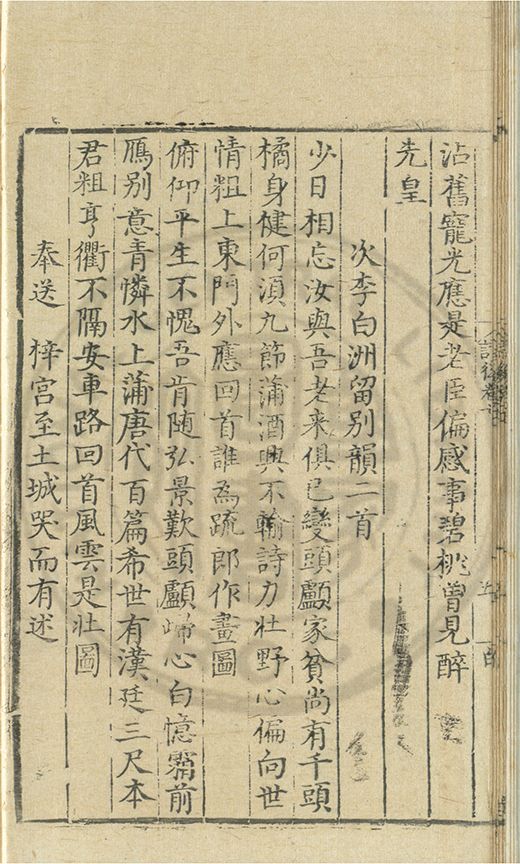 沾舊寵光應是老臣偏感事碧桃曾見醉
先皇
次李白洲留別韻二首
少日相忘汝與吾老來俱已變頭顱家貧尚有千頭
橘身健何須九節蒲酒興不輸詩力壯野心偏向世
情粗上東門外應回首誰為疏郎作畫圖
俯仰平生不愧吾肯随弘景歎頭顱歸心白憶霜前
鴈別意青憐水上蒲唐代百篇希世有漢廷三尺本
君粗亨衢不隔安車路回首風雲是壯圖
奉送 梓宮至土城哭而有述